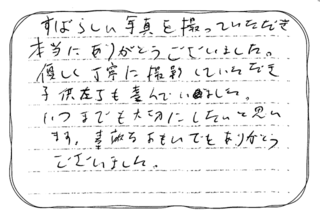 すばらしい写真を撮っていただき
本当にありがとうございました。
優しく丁寧に撮影していただき
子供たちも喜んでいました。
いつまでも大切にしたいと思い
ます。素敵なおもいでをありがとう
ございました。